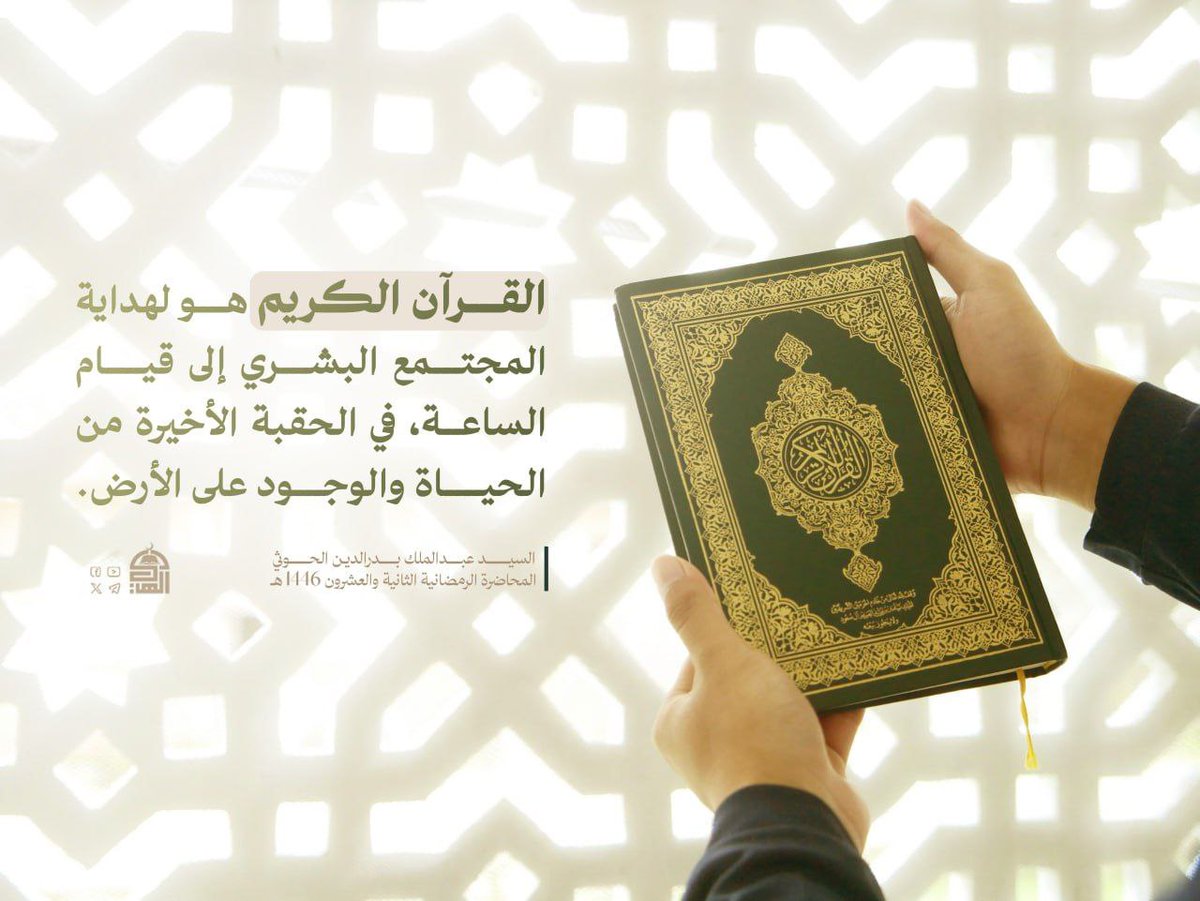 القرآن الكريم هو لهداية
المجتمع البشري إلى قيام
الساعة، في الحقبة الأخيرة من
الحياة والوجود على الأرض.
السيد عبدالملك بدرالدين الحوثي
المحاضرة الرمضانية الثانية والعشرون 1446هـ
القرآن الكريم